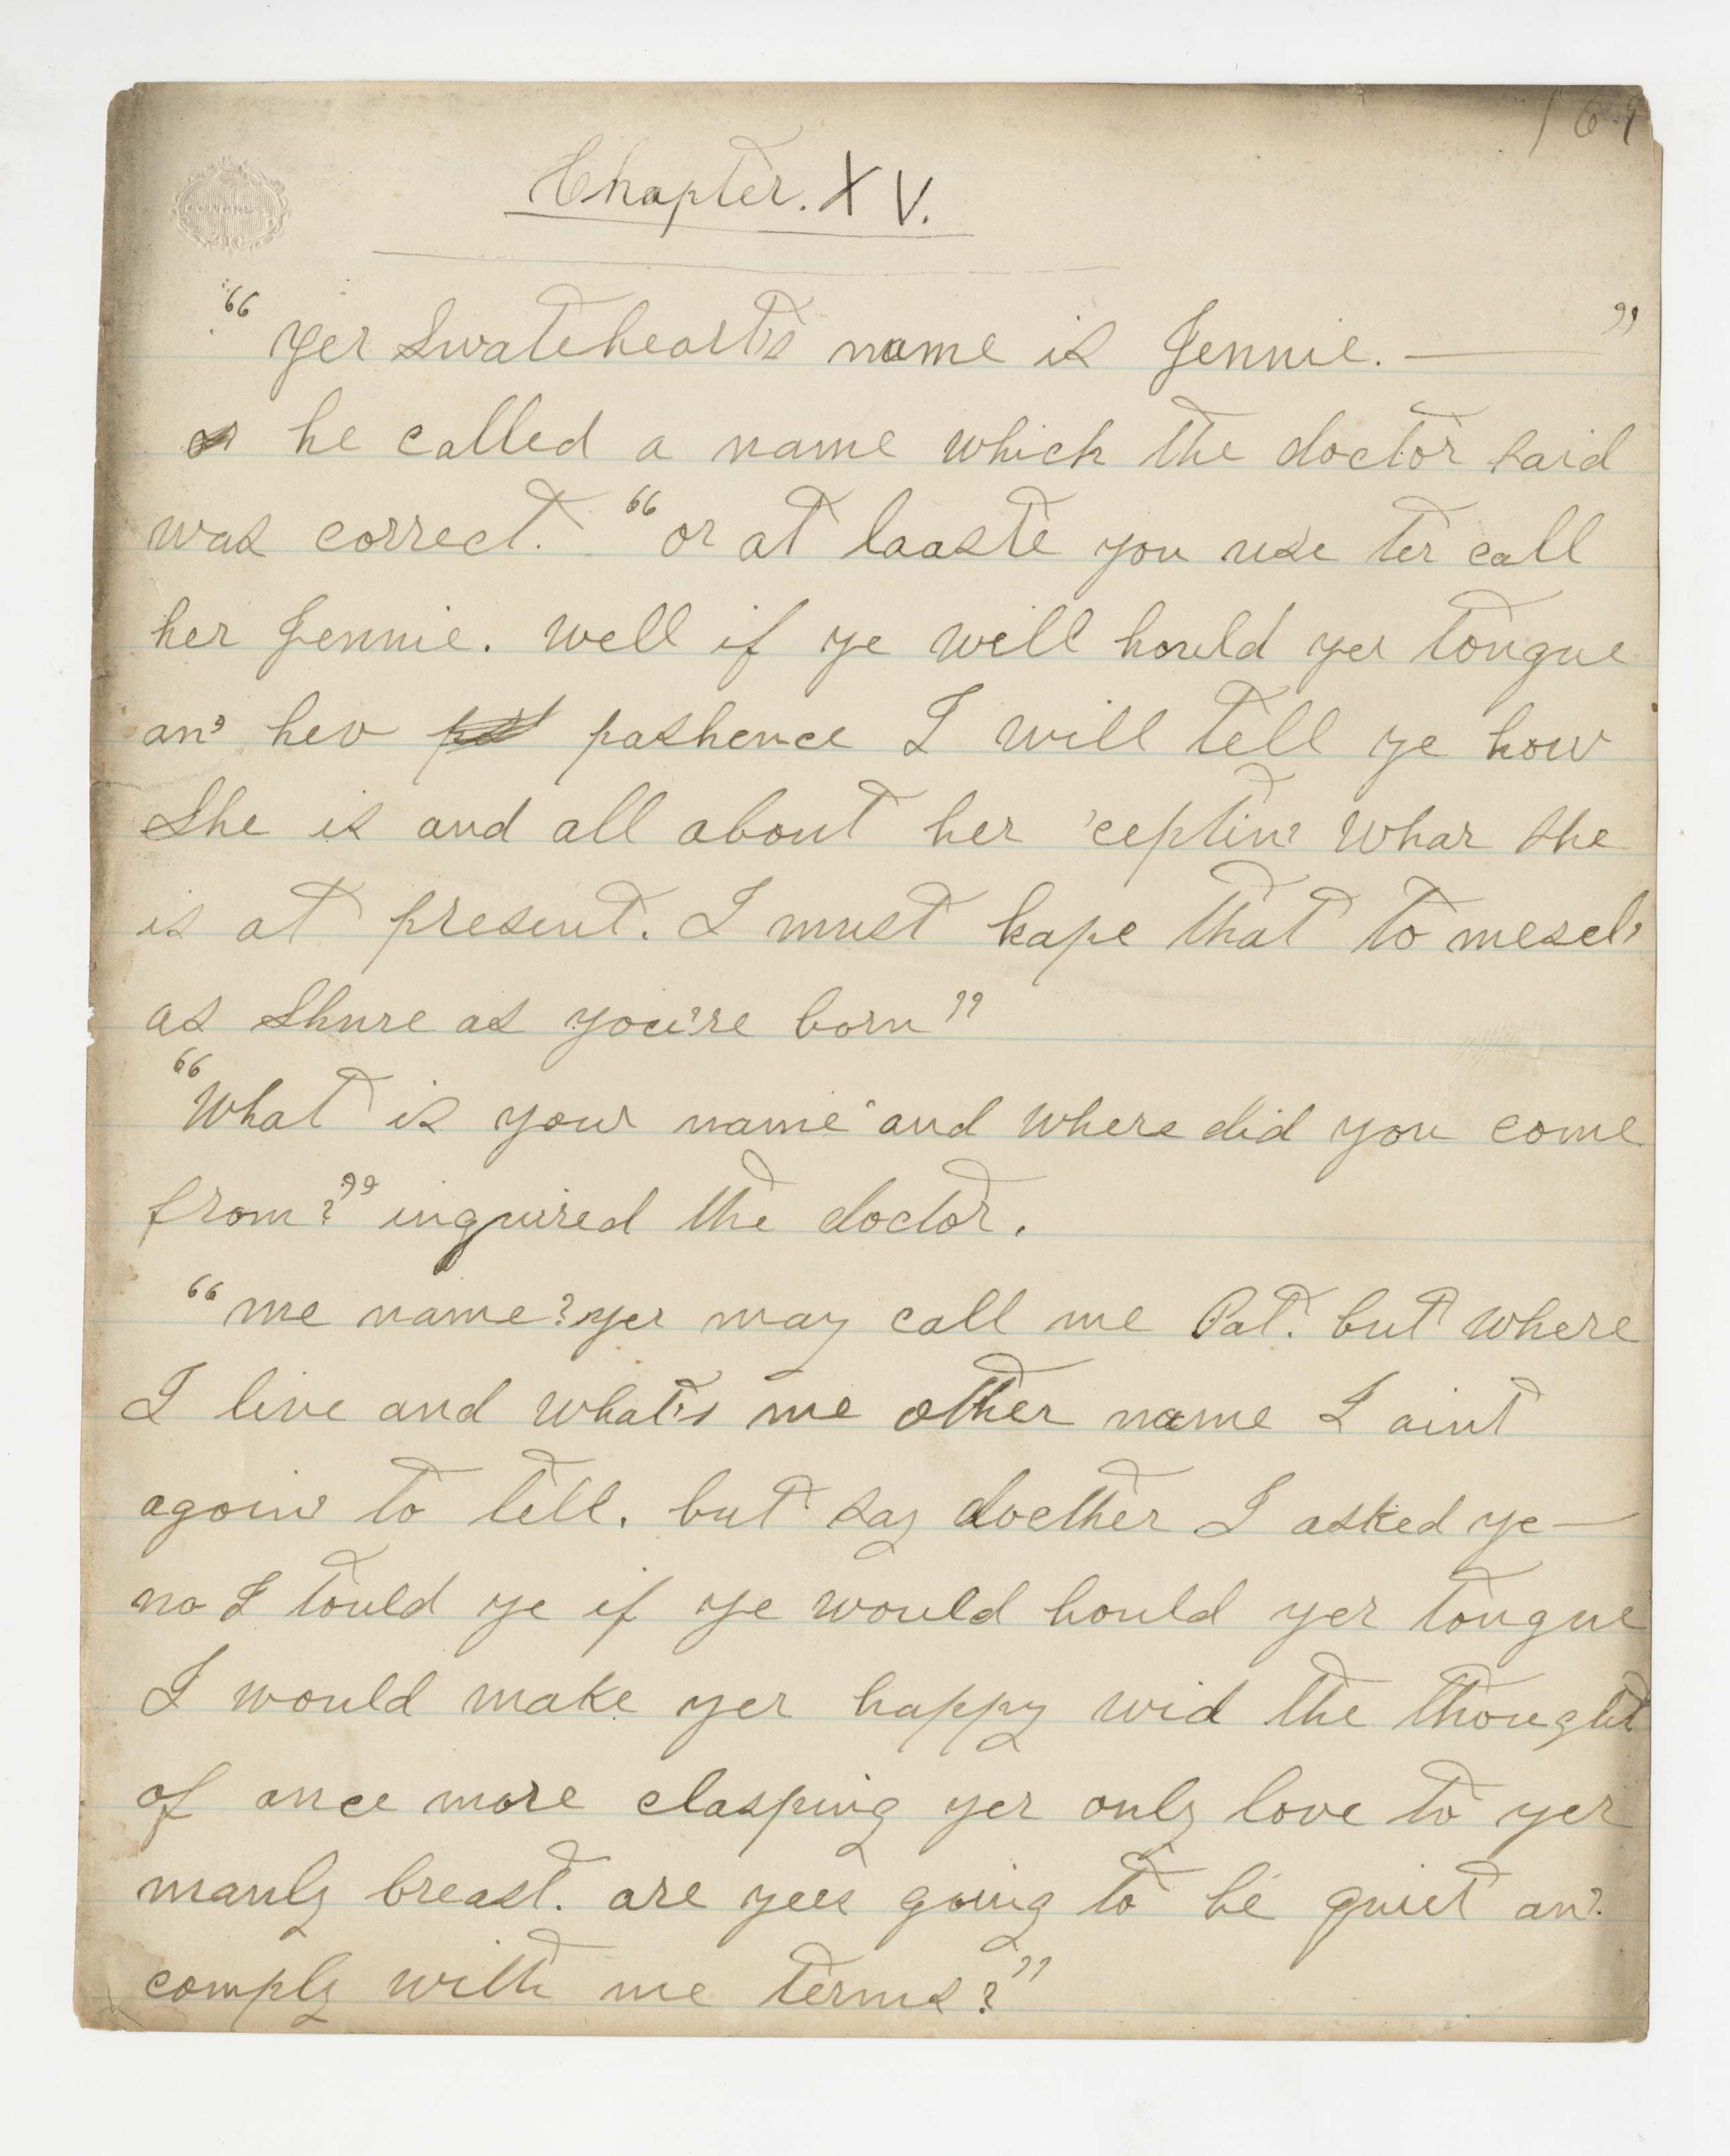 169
Chapter. XV.
"Yer Swatehearts name is Jennie. — "
he called a name which the doctor said
was correct. "or at laaste you use ter call
her Jennie. well if ye will hould yer tongue
an' hev pashence I will tell ye how
She is and all about her 'ceptin' whar she
is at present. I must kape that to mesel'
as Shure as you're born"
"What is your name and where did you come
from?" inquired the doctor.
"me name? yer may call me Pat. but where
I live and what's me other name I aint
agoin' to tell. but say docther I asked ye —
no I tould ye if ye would hould yer tongue
I would make yer happy wid the thought
of once more clasping yer only love to yer
manly breast. are yees going to be quiet an'
comply with me terms?"